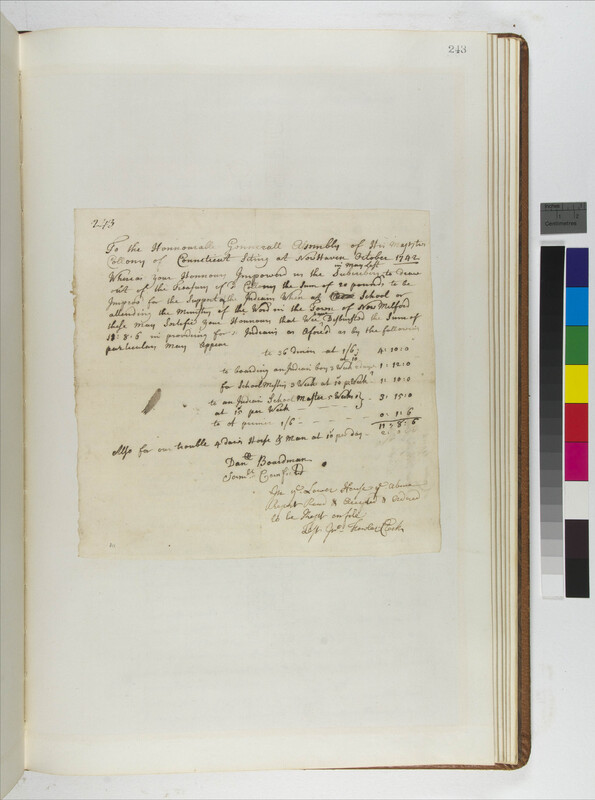 243
243
To the Honnourable Gennerall Assembly of His Majesties
Collony of Connecticut Siting at New Haven October 1742
in may last
Whereas your Honnours Impowred us the Subscribers to draw
out of the Treasury of sd Collony the Sum of 20 pounds to be
Improvd for the Support of the Indians When at School or
attending the Ministry of the Word in the Town of New Milford
these May Sertefie your Honnours that We Disbursted the Sum of
11:8:6 in providing for sd Indians as aforesd as by the following
particulars May Appear
to 36 diners at 1/6 4:10:0
to boarding an Indian boy 3 Weeks 1:12:0
for School Master 3 Weeks at 10 pr Week 1:10:0
to an Indian School Master 5 Weeks
at 15 per Week 3:15:0
to 1/6 0:1:6
11:8:6
Also for our trouble 4 daies Horse & Man at 10 per day
Danll Boardman
Samll Canfield
In ye Lower House ye above
Report Read & Accepted & ordred
to be Kept on file
Test Clerk